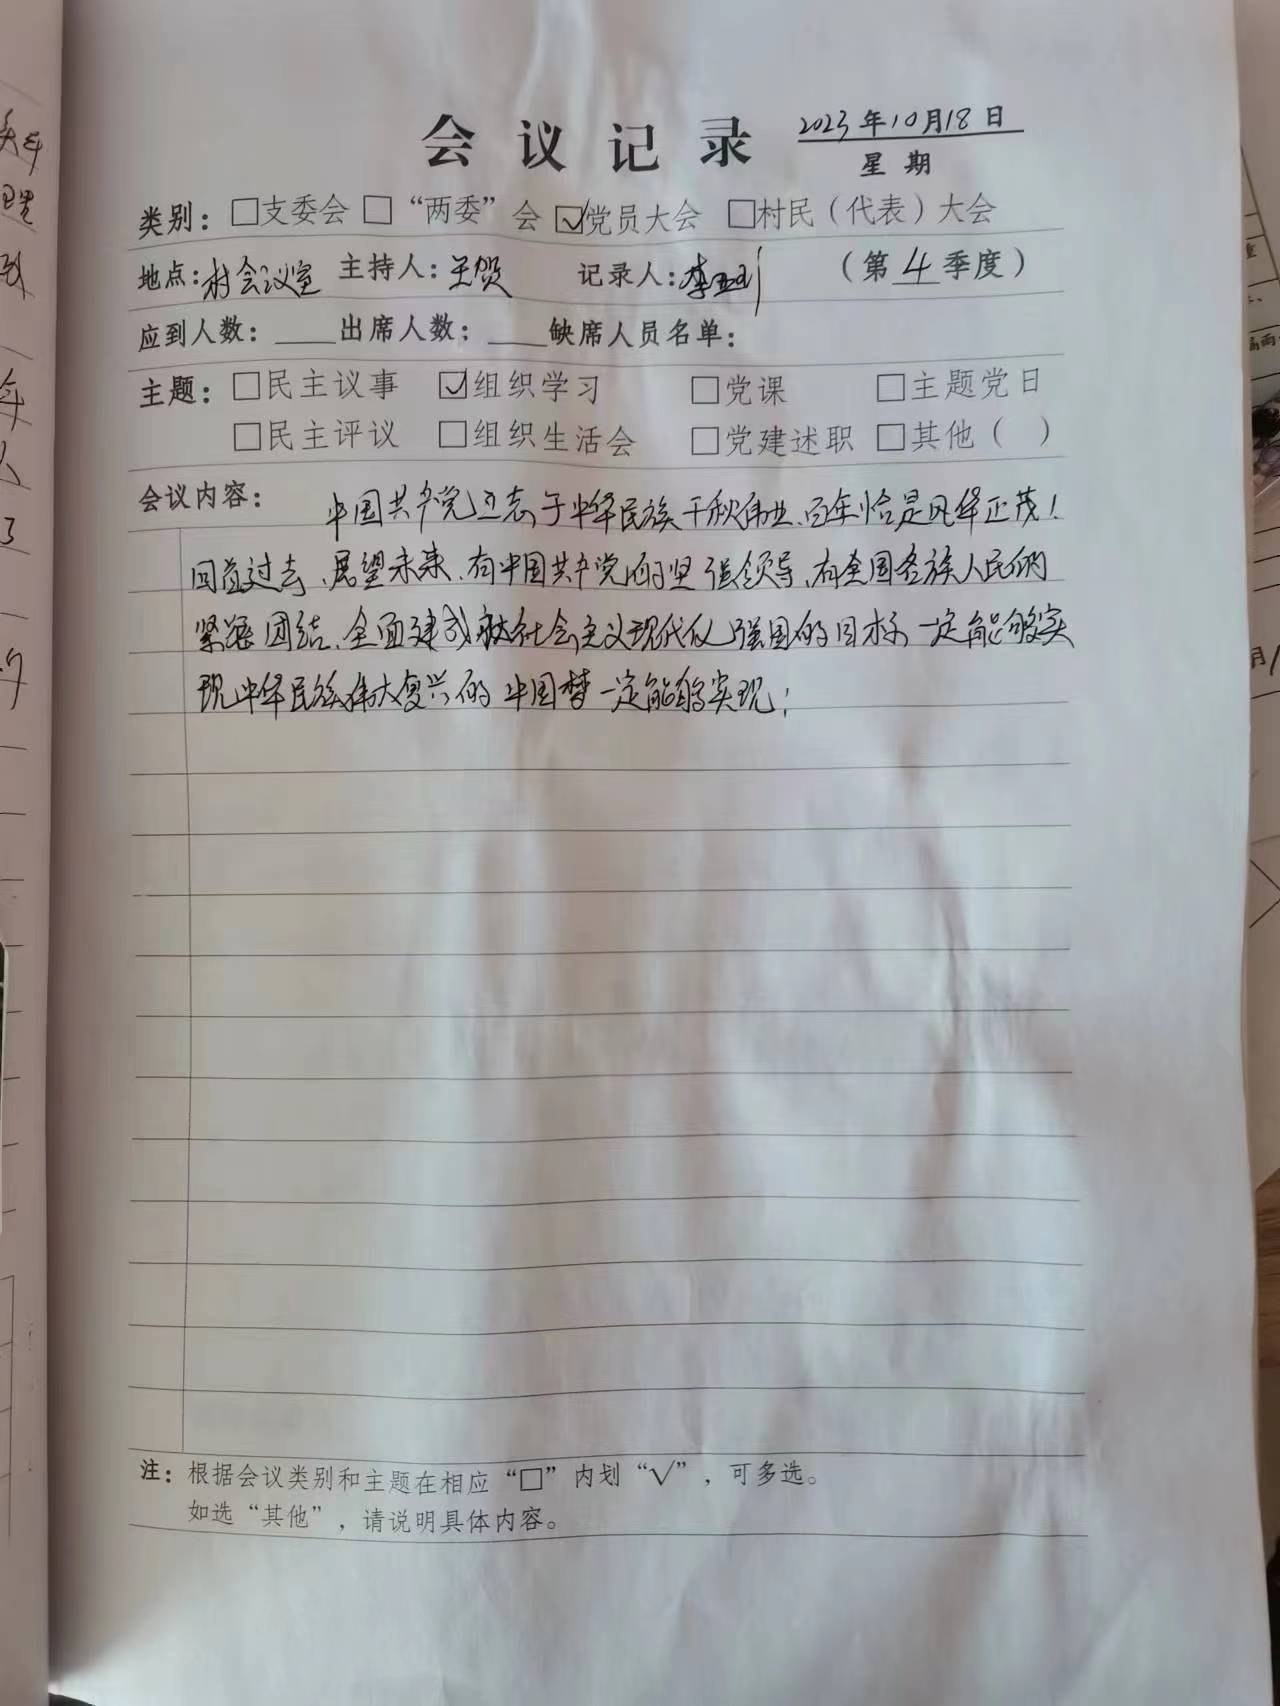 会议记录 2023年10月18日
星期
类别：□支委会 □“两委”会 ☑党员大会 □村民（代表）大会
地点：村会议室 主持人：王贺 记录人：李 （第4季度）
应到人数：____出席人数：____缺席人员名单：
主题：□民主议事 ☑组织学习 □党课 □主题党日
□民主评议 □组织生活会 □党建述职 □其他（ ）
会议内容： 中国共产党立志于中华民族千秋伟业、百年恰是风华正茂！
回首过去、展望未来、有中国共产党的坚强领导、有全国各族人民的
紧密团结、全面建成社会主义现代化强国的目标一定能够实
现中华民族伟大复兴的中国梦一定能够实现；
注：根据会议类别和主题在相应“□”内划“√”，可多选。
如选“其他”，请说明具体内容。